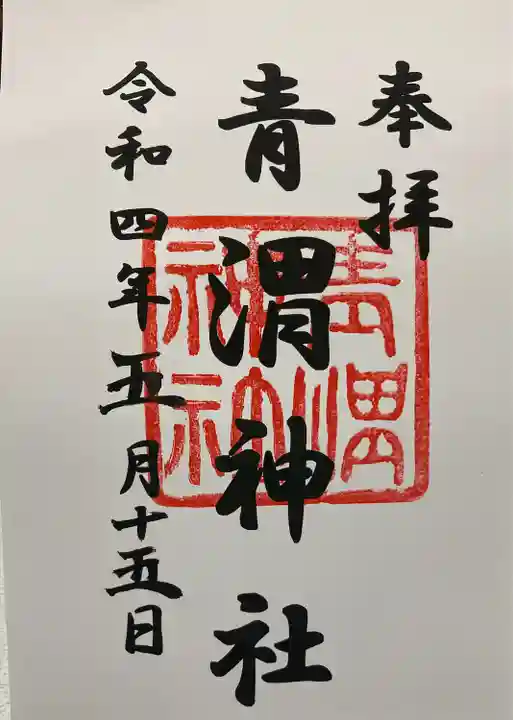 奉拝
青渭神社
令和四年五月十五日
青渭神社